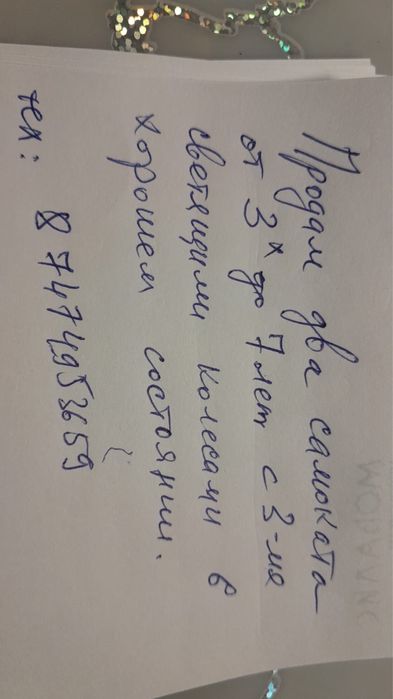 Продам два самоката
от 3х до 7 лет с 3-мя
светящими колесами в
хорошем состоянии.
тел: 8 7474953659